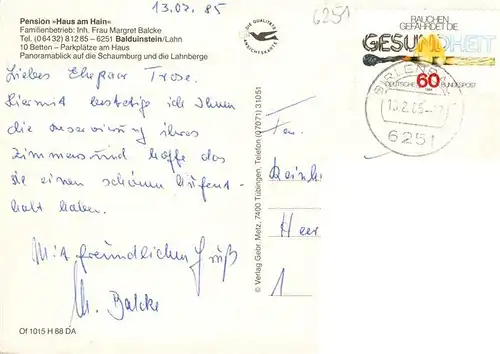 13.02.85
6251
Pension »Haus am Hain«
Familienbetrieb: Inh. Frau Margret Balcke
Tel. (0 64 32) 8 12 85 – 6251 Balduinstein/Lahn
10 Betten – Parkplätze am Haus
Panoramablick auf die Schaumburg und die Lahnberge
DIE QUALITÄTS
ANSICHTSKARTE
RAUCHEN
GEFÄHRDET DIE
GESUNDHEIT
60
DEUTSCHE BUNDESPOST
6251
Liebes Ehepaar Trose.
Hiermit bestetige ich Ihnen
die reservirung ihres
Zimmers und hoffe das
sie einen schönen Aufent-
halt haben.
Mit freundlichen Gruß
M. Balcke
Fam.
Reinh
Heer
1
© Verlag Gebr. Metz, 7400 Tübingen, Telefon (0 70 71) 3 10 51
Of 1015 H 88 DA